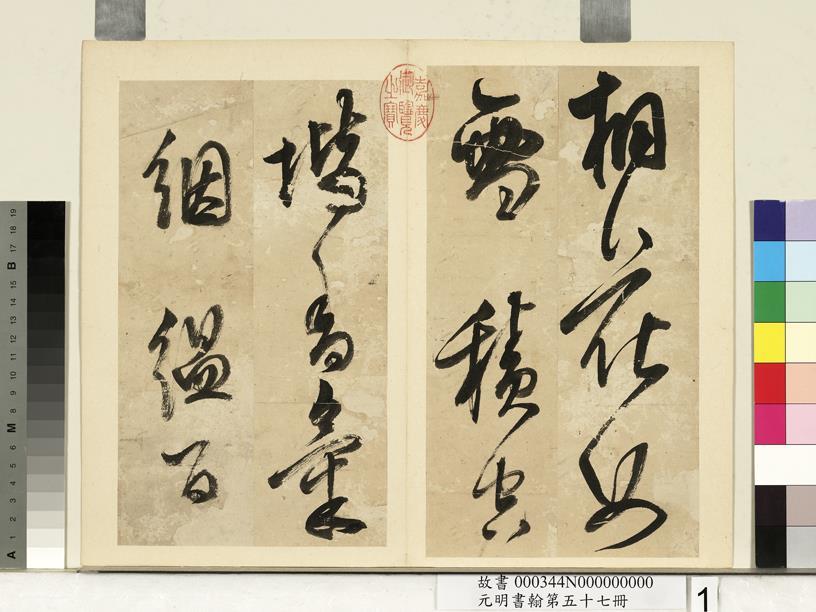 嘉慶御覽之寶
桐〻花如
雪積空
堦〻香氣
絪縕百
故書 000344N000000000
元明書翰第五十七冊
1
A 1 2 3 4 5 6 M 8 9 10 11 12 13 14 15 B 17 18 19